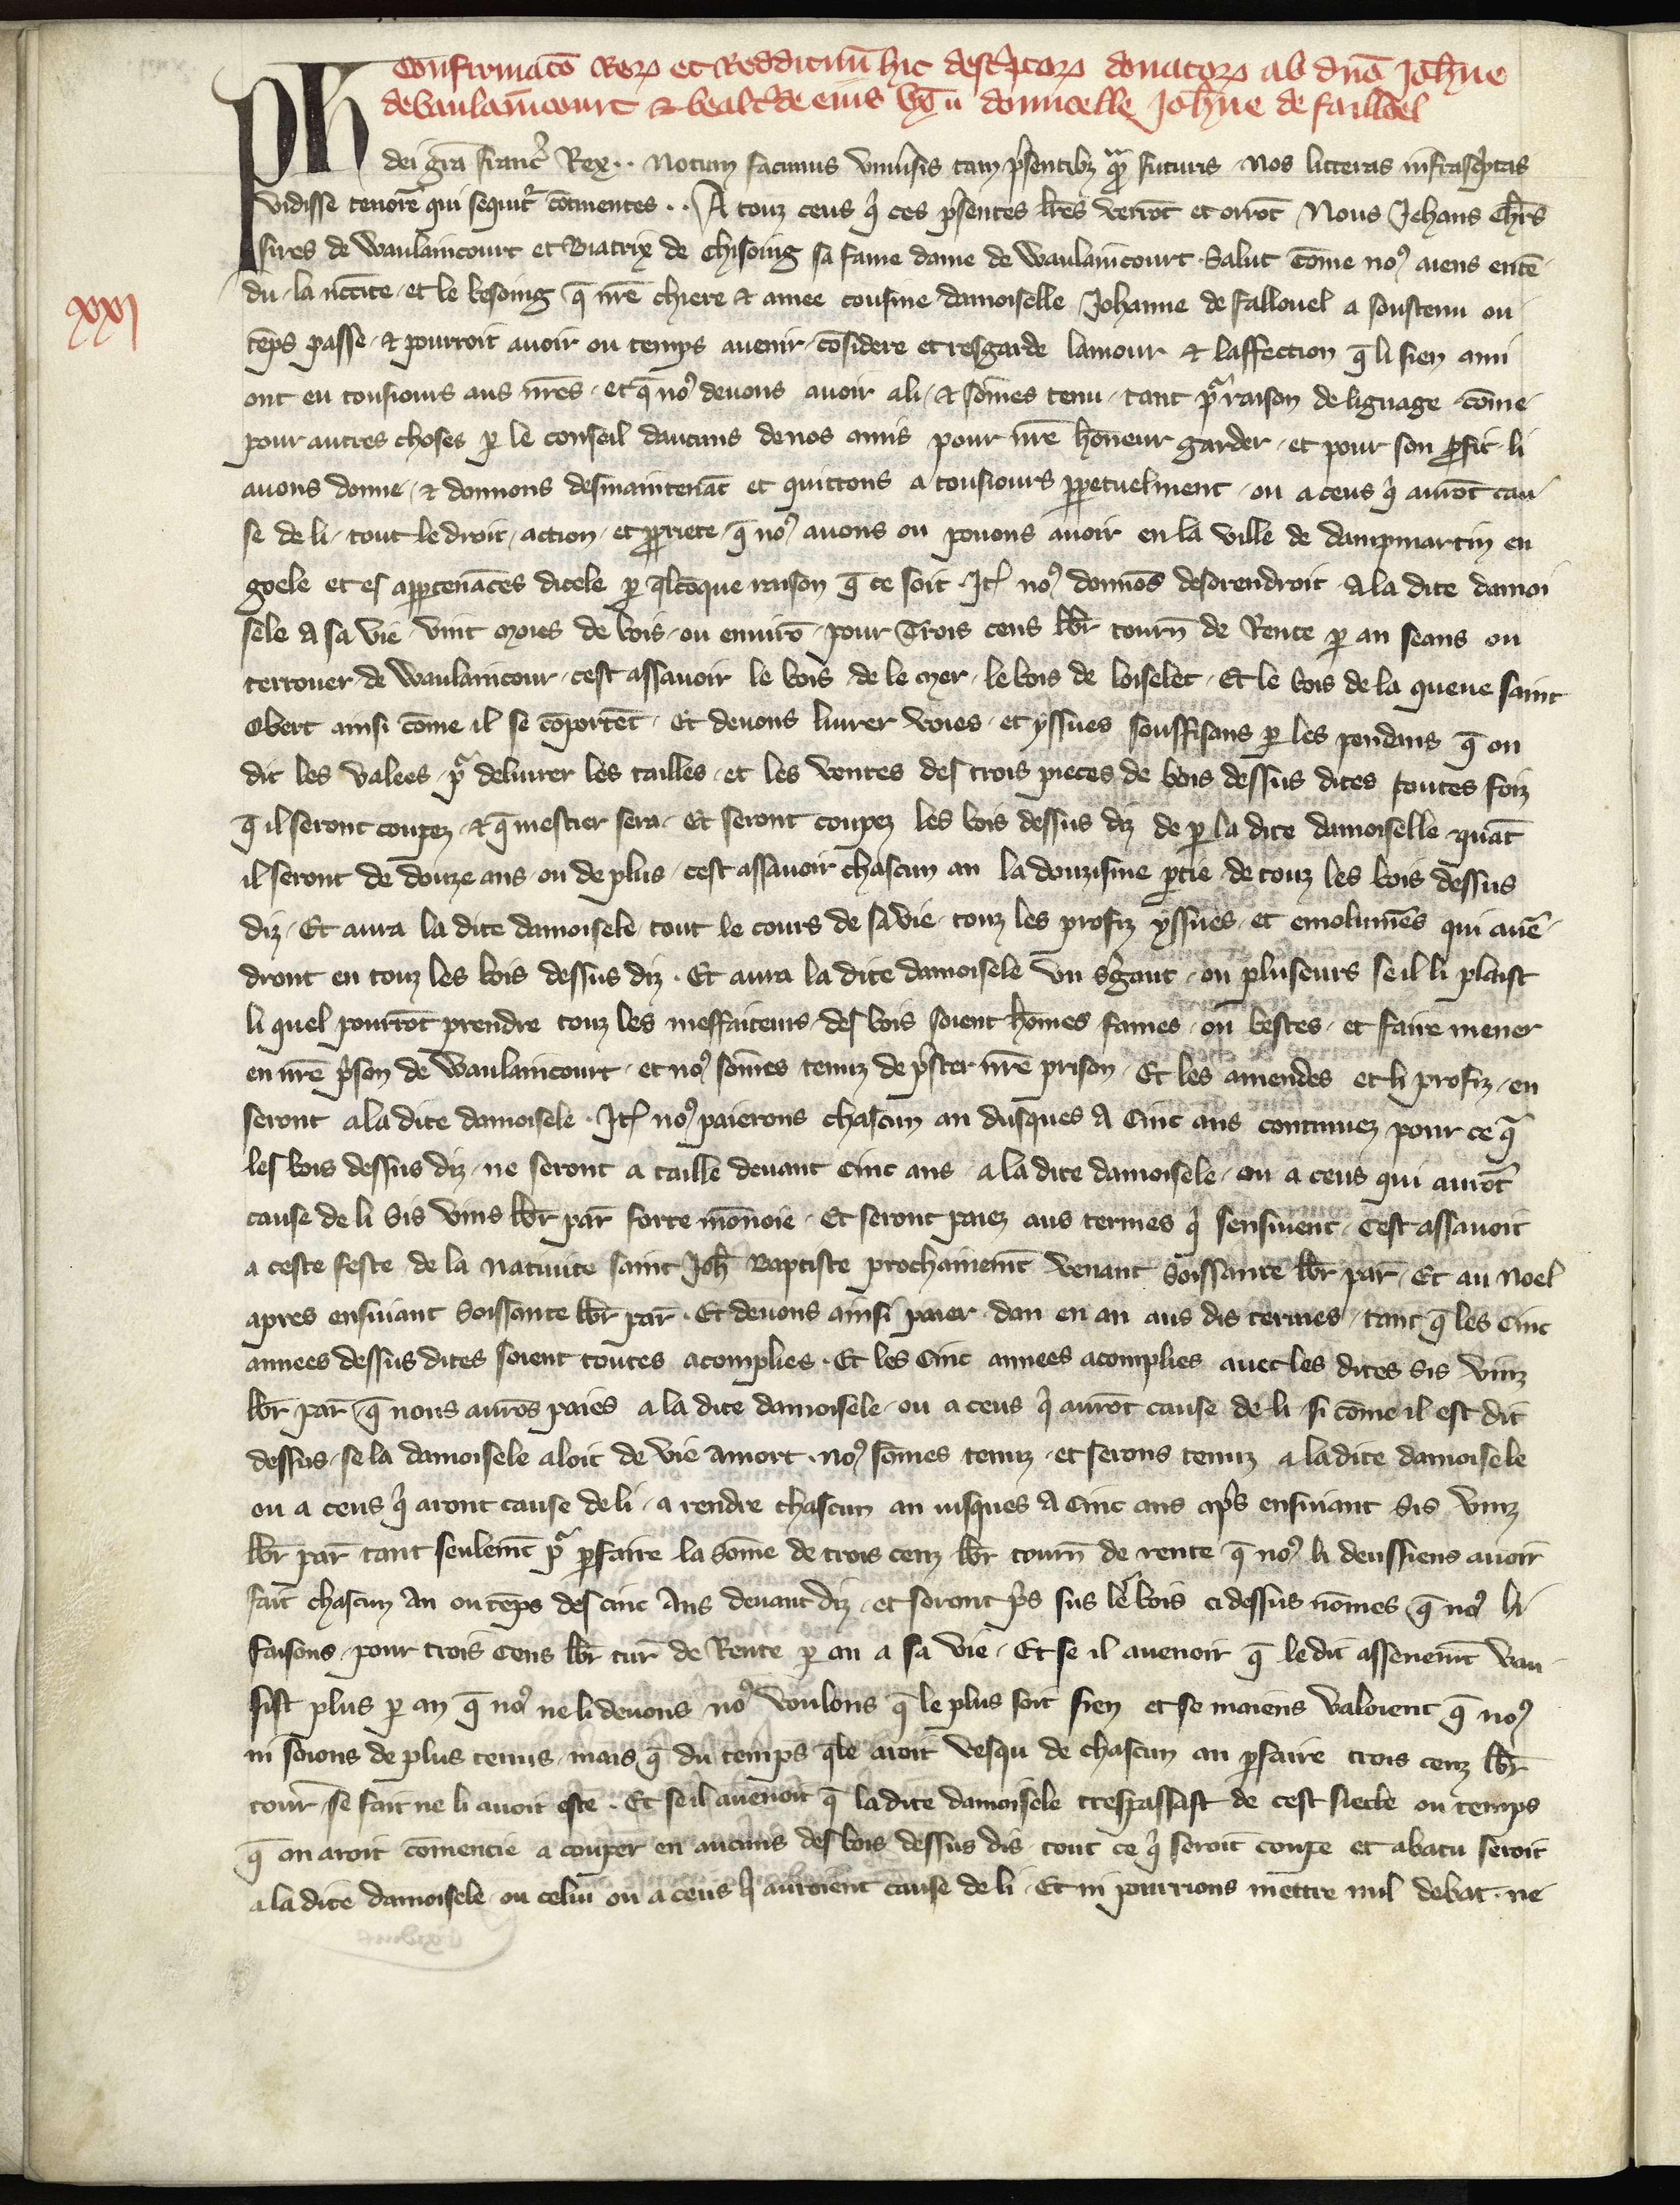 Confirmacō Reꝝ et Reddituū hic desc̾ptoꝝ donatoꝝ ab dn̄o Joh̄ne
de Vaulaincourt & beat̾ce eius vx̄ domicelle Joh̄ne de faillouel
Ph dei gr̄a franc̾ Rex ·· Notum facimus vniu̾sis tam p̾sentibꝫ qᷓm futuris · Nos litteras infrasc̾ptas
vidisse tenorē qui sequit̾ cōtinentes ·· A touz ceus qͥ ces p̾sentes lr̄es verrōt et orrōt Nous Jehans Chl̄rs
sires de Waulaincourt et Biatrix de Chisoing sa fame dame de Waulaincourt · Salut Cōme noꝰ aiens entē
du · la nc̄cite · et le besoing q̄ nr̄e chiere & amee cousine damoiselle Johanne de fallouel a soustenu ou
xxj
tēps passe · & pourroit auoir ou temps auenir · cōsidere et resgarde lamour & laffection q̄ li sien ami
ont eu tousiours aus nr̄es · et q̄ noꝰ deuons auoir a li · & sōmes tenu · tant pᷓ raison de lignage · cōme
pour autres choses ꝑ le conseil daucuns de nos amis pour nr̄e hōneur garder · et pour son ꝓfit · li
auons donne · & donnons desmaintenāt et quittons a tousiours ꝑpetuelment · ou a ceus qͥ aurōt cau
se de li · tout le droit · action · et ꝓpriete · q̄ noꝰ auons ou pouons auoir en la ville de dampmartin en
goele et es apꝑtenāces dicele ꝑ q̄lcōque raison q̄ ce soit · Itē noꝰ donnōs desorendroit · a la dite damoi
sele a sa vie · vint moies de bois · ou enuirō · pour Trois cens lb̄r tourn̄ de Rente ꝑ an seans ou
terrouer de Waulaincour · cest assauoir le bois de le mer · le bois de loiselet · Et le bois de la queue saint
Obert ainsi cōme il se cōportēt · Et deuons liurer voies · et yssues souffisans ꝑ les pendans q̄ on
dit les valees · pᷓ deliurer les tailles · et les ventes des trois pieces de bois dessus dites toutes foiz
q̄ il seront coupez · & q̄ mestier sera · Et seront coupez les bois dessus diz de ꝑ la dite damoiselle quāt
il seront de douze ans ou de plus · cest assauoir chascun an la douzisme ꝑtie · de touz les bois dessus
diz · Et aura la dite damoisele tout le cours de sa vie · touz les profiz yssues · et emolumēs qui auē
dront en touz les bois dessus diz · Et aura la dite damoisele vn s̾gant · ou pluseurs se il li plaist
li quel pourrōt prendre touz les meffaiteurs · des bois soient hōmes fames · ou bestes · et faire mener
en nr̄e p̾son de Waulaincourt · et noꝰ sōmes tenuz de p̾ster nr̄e prison · Et les amendes et li profiz · en
seront a la dite damoisele · Itē noꝰ paierons chascun an dusques a Cinc ans continuez pour ce qᷓ
les bois dessus diz · ne seront a taille deuant cinc ans · a la dite damoisele · ou a ceus qui aurōt
cause de li Sis vins lb̄r par̄ forte mōnoie · Et seront paiez aus termes qͥ sensiuent · Cest assauoir
a ceste feste de la natiuite saint Joh̄ Baptiste prochainemēt venant Soissante lb̄r par̄ · Et au Noel
apres ensiuant Soissante lb̄r par̄ · Et deuons ainsi paier dan en an aus dis termes · tant q̄ les Cinc
annees dessus dites soient toutes acomplies · Et les Cinc annees acomplies auec les dites Sis vinz
lb̄r par̄ · q̄ nous aurōs paies a la dite damoisele · ou a ceus qͥ aurōt cause de li · si cōme il est dit
dessus · se la damoisele aloit de vie a mort · noꝰ sōmes tenuz · et serons tenuz a la dite damoisele
ou a ceus qͥ aront cause de li · a rendre chascun an iusques a Cinc ans ap̾s ensiuant Sis vinz
lb̄r par̄ tant seulemēt pᷓ ꝑfaire la sōme de trois cenz lb̄r tourn̄ de rente q̄ noꝰ li deussiens auoir
fait chascun an ou tēps des cinc Ans deuant diz · et seront p̾s sus le bois ci dessus nōmes q̄ noꝰ li
faisons · pour trois Cens lb̄r tur̄ de Rente ꝑ an a sa vie · Et se il auenoit q̄ le dit assenemēt vau
sist plus ꝑ an q̄ noꝰ ne li deuons noꝰ voulons q̄ le plus soit sien et se moiens valoient q̄ noꝰ
ni soions de plus tenus · mais q̄ du temps q̄le aroit vesqu de chascun an ꝑfaire trois cenz lb̄r
tour̄ · se fait ne li auoit este · Et se il auenoit q̄ la dite damoisele trespassast de cest siecle ou temps
q̄ on aroit cōmencie a couper en aucuns des bois dessus dis · tout ce qͥ seroit coupe et abatu seroit
a la dite damoisele · ou celui ou a ceus qͥ auroient cause de li · Et ni pourrions mettre nul debat · ne